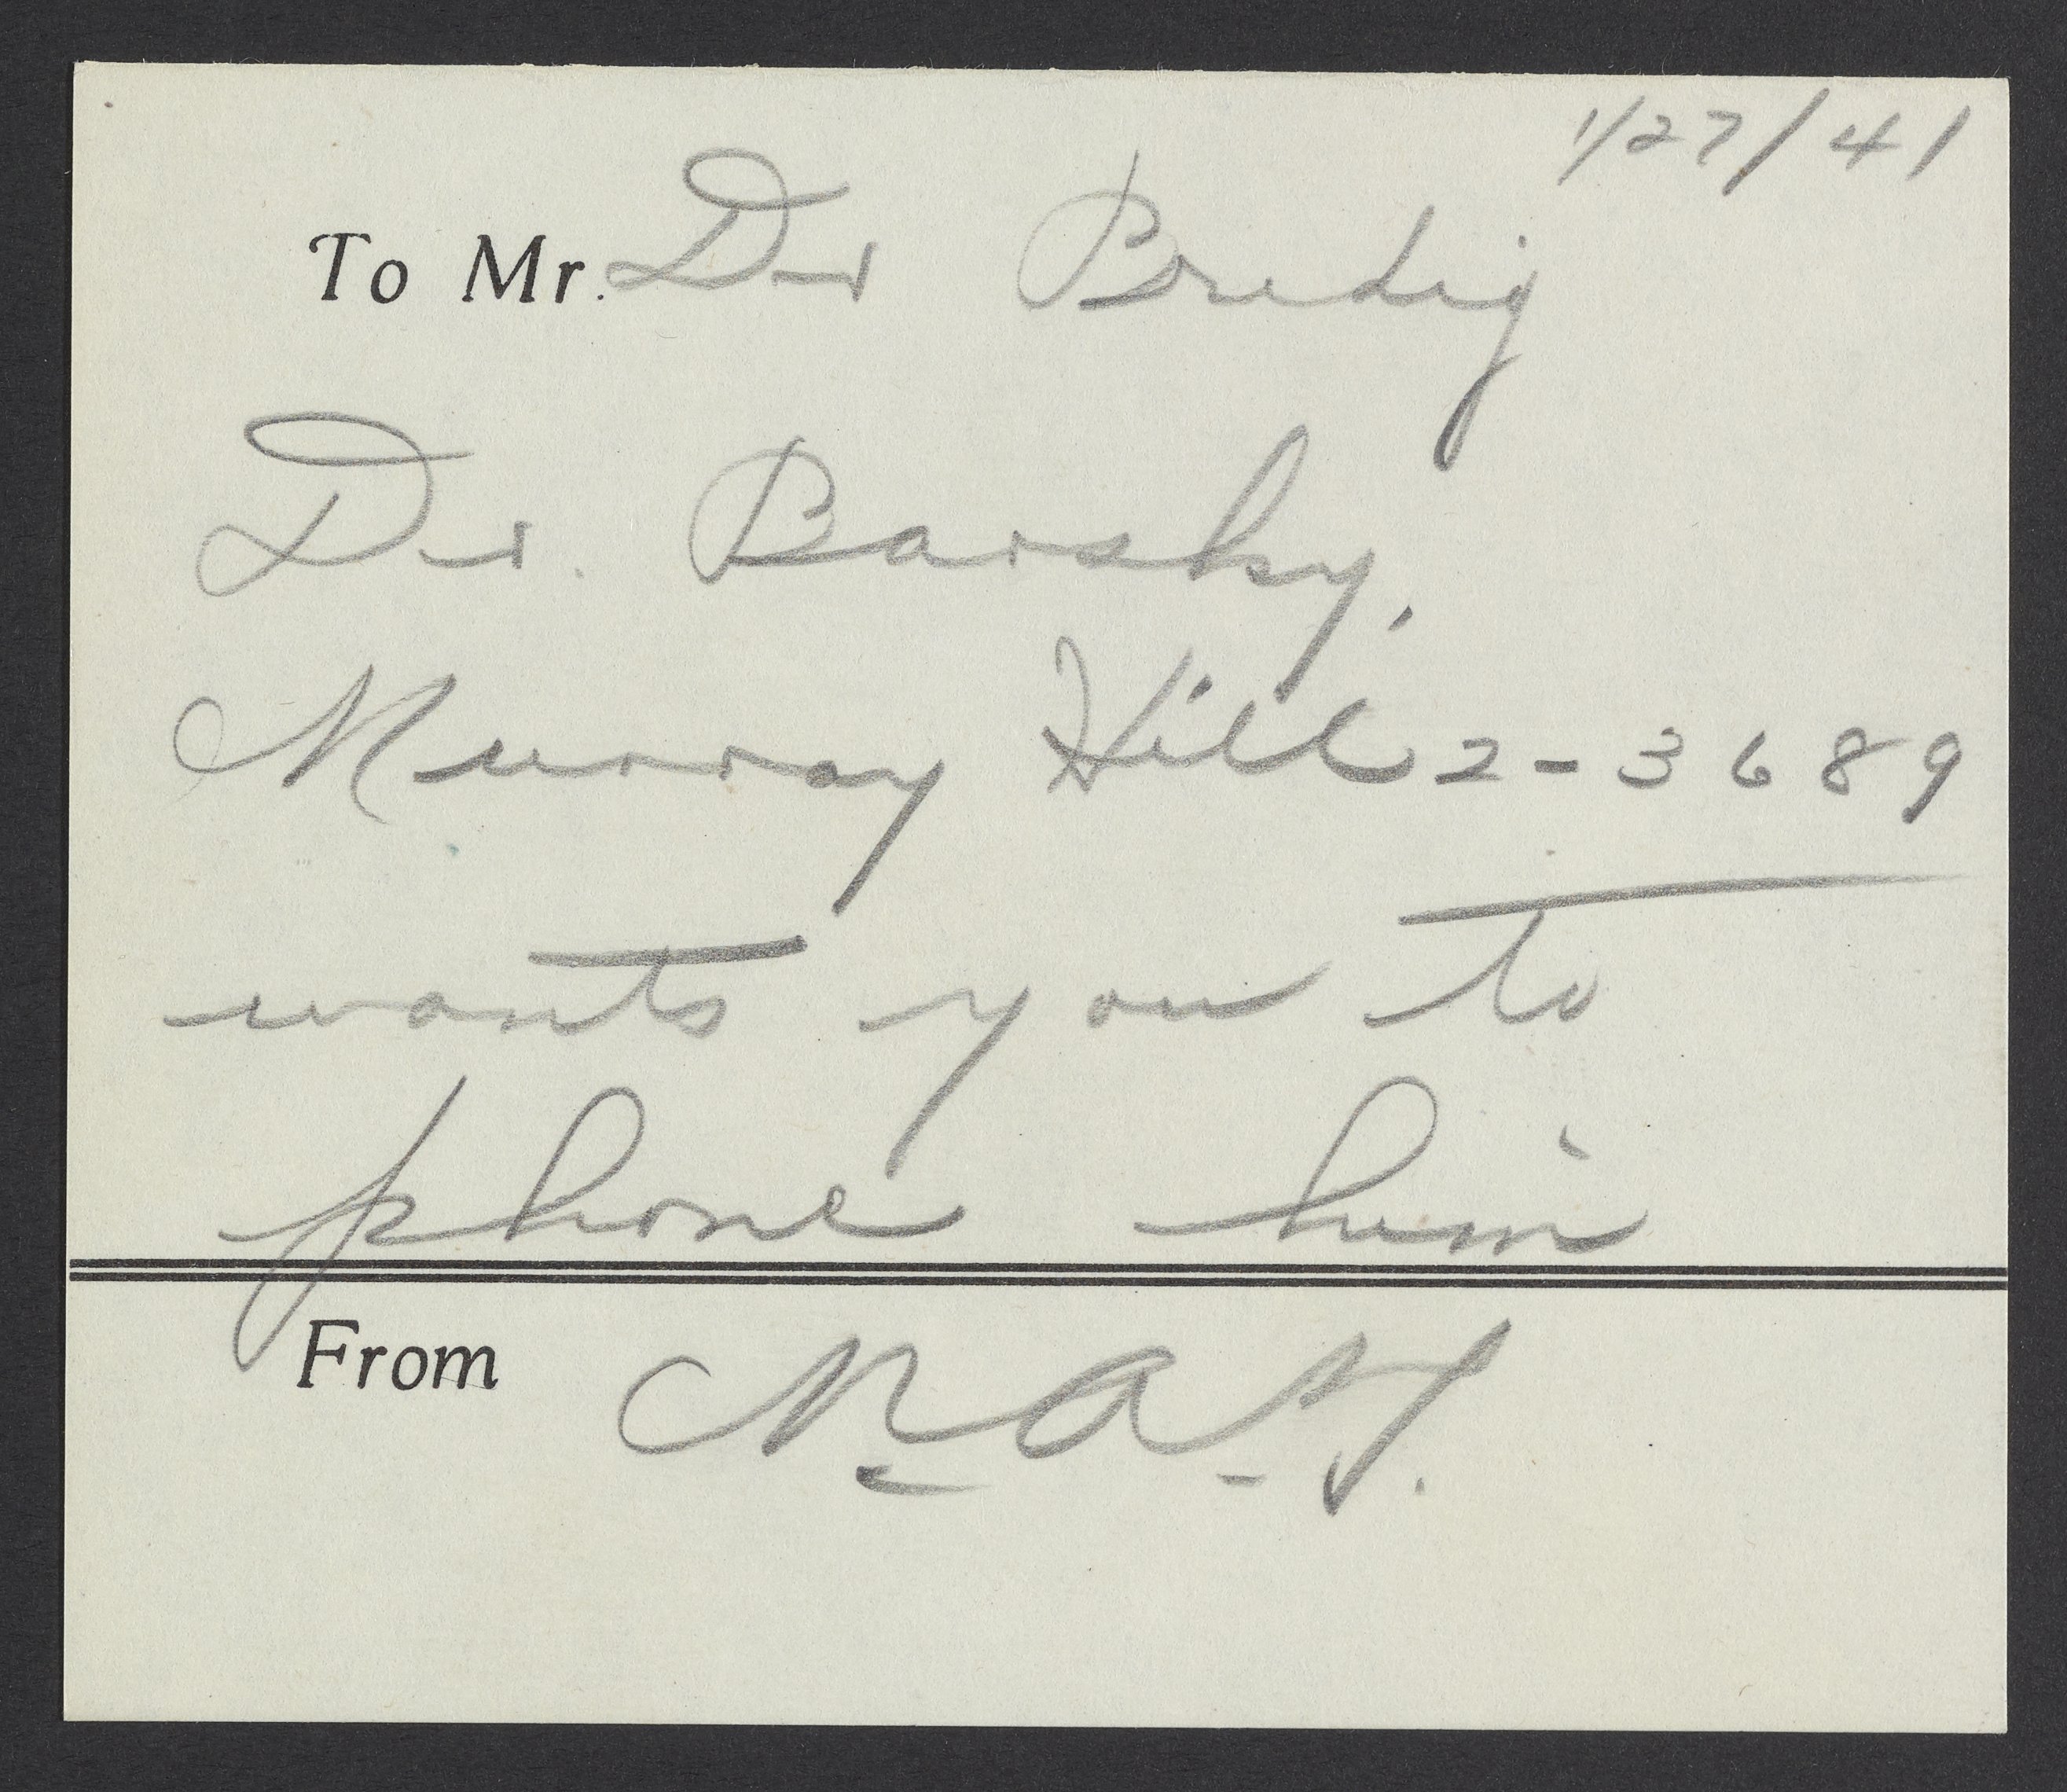 1/27/41
To Mr. Dr Bredig
Dr. Barsky,
Murray Hill 2-3689
wants you to
phone him
From